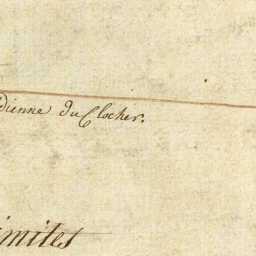 dienne du Clocher.
imites